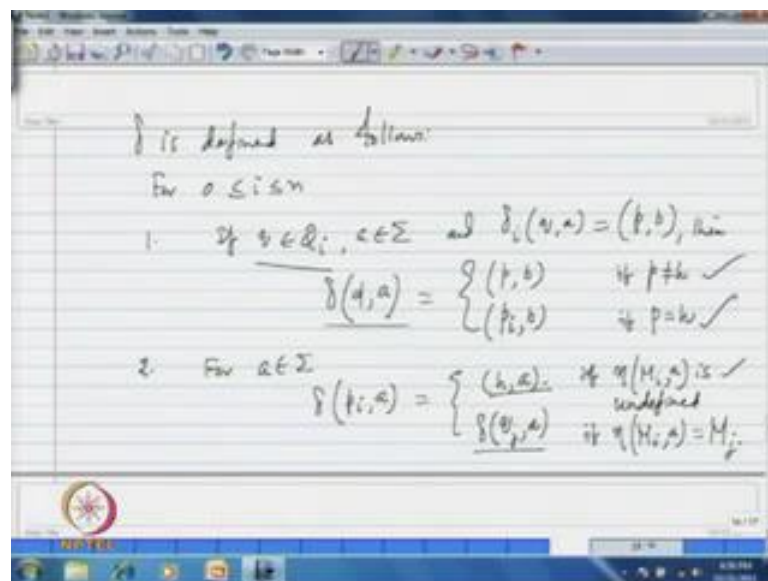 δ is defined as follows:
For 0 ≤ i ≤ n
1. If q ∈ Q_i, a ∈ Σ and δ_i(q, a) = (p, b), then
δ(q, a) = { (p, b) if p ≠ h ✓
(p_i, b) if p = h ✓
2. For a ∈ Σ
δ(p_i, a) = { (h, a). if η(M_i, a) is ✓
undefined
δ(q_j, a) if η(M_i, a) = M_j.
NPTEL